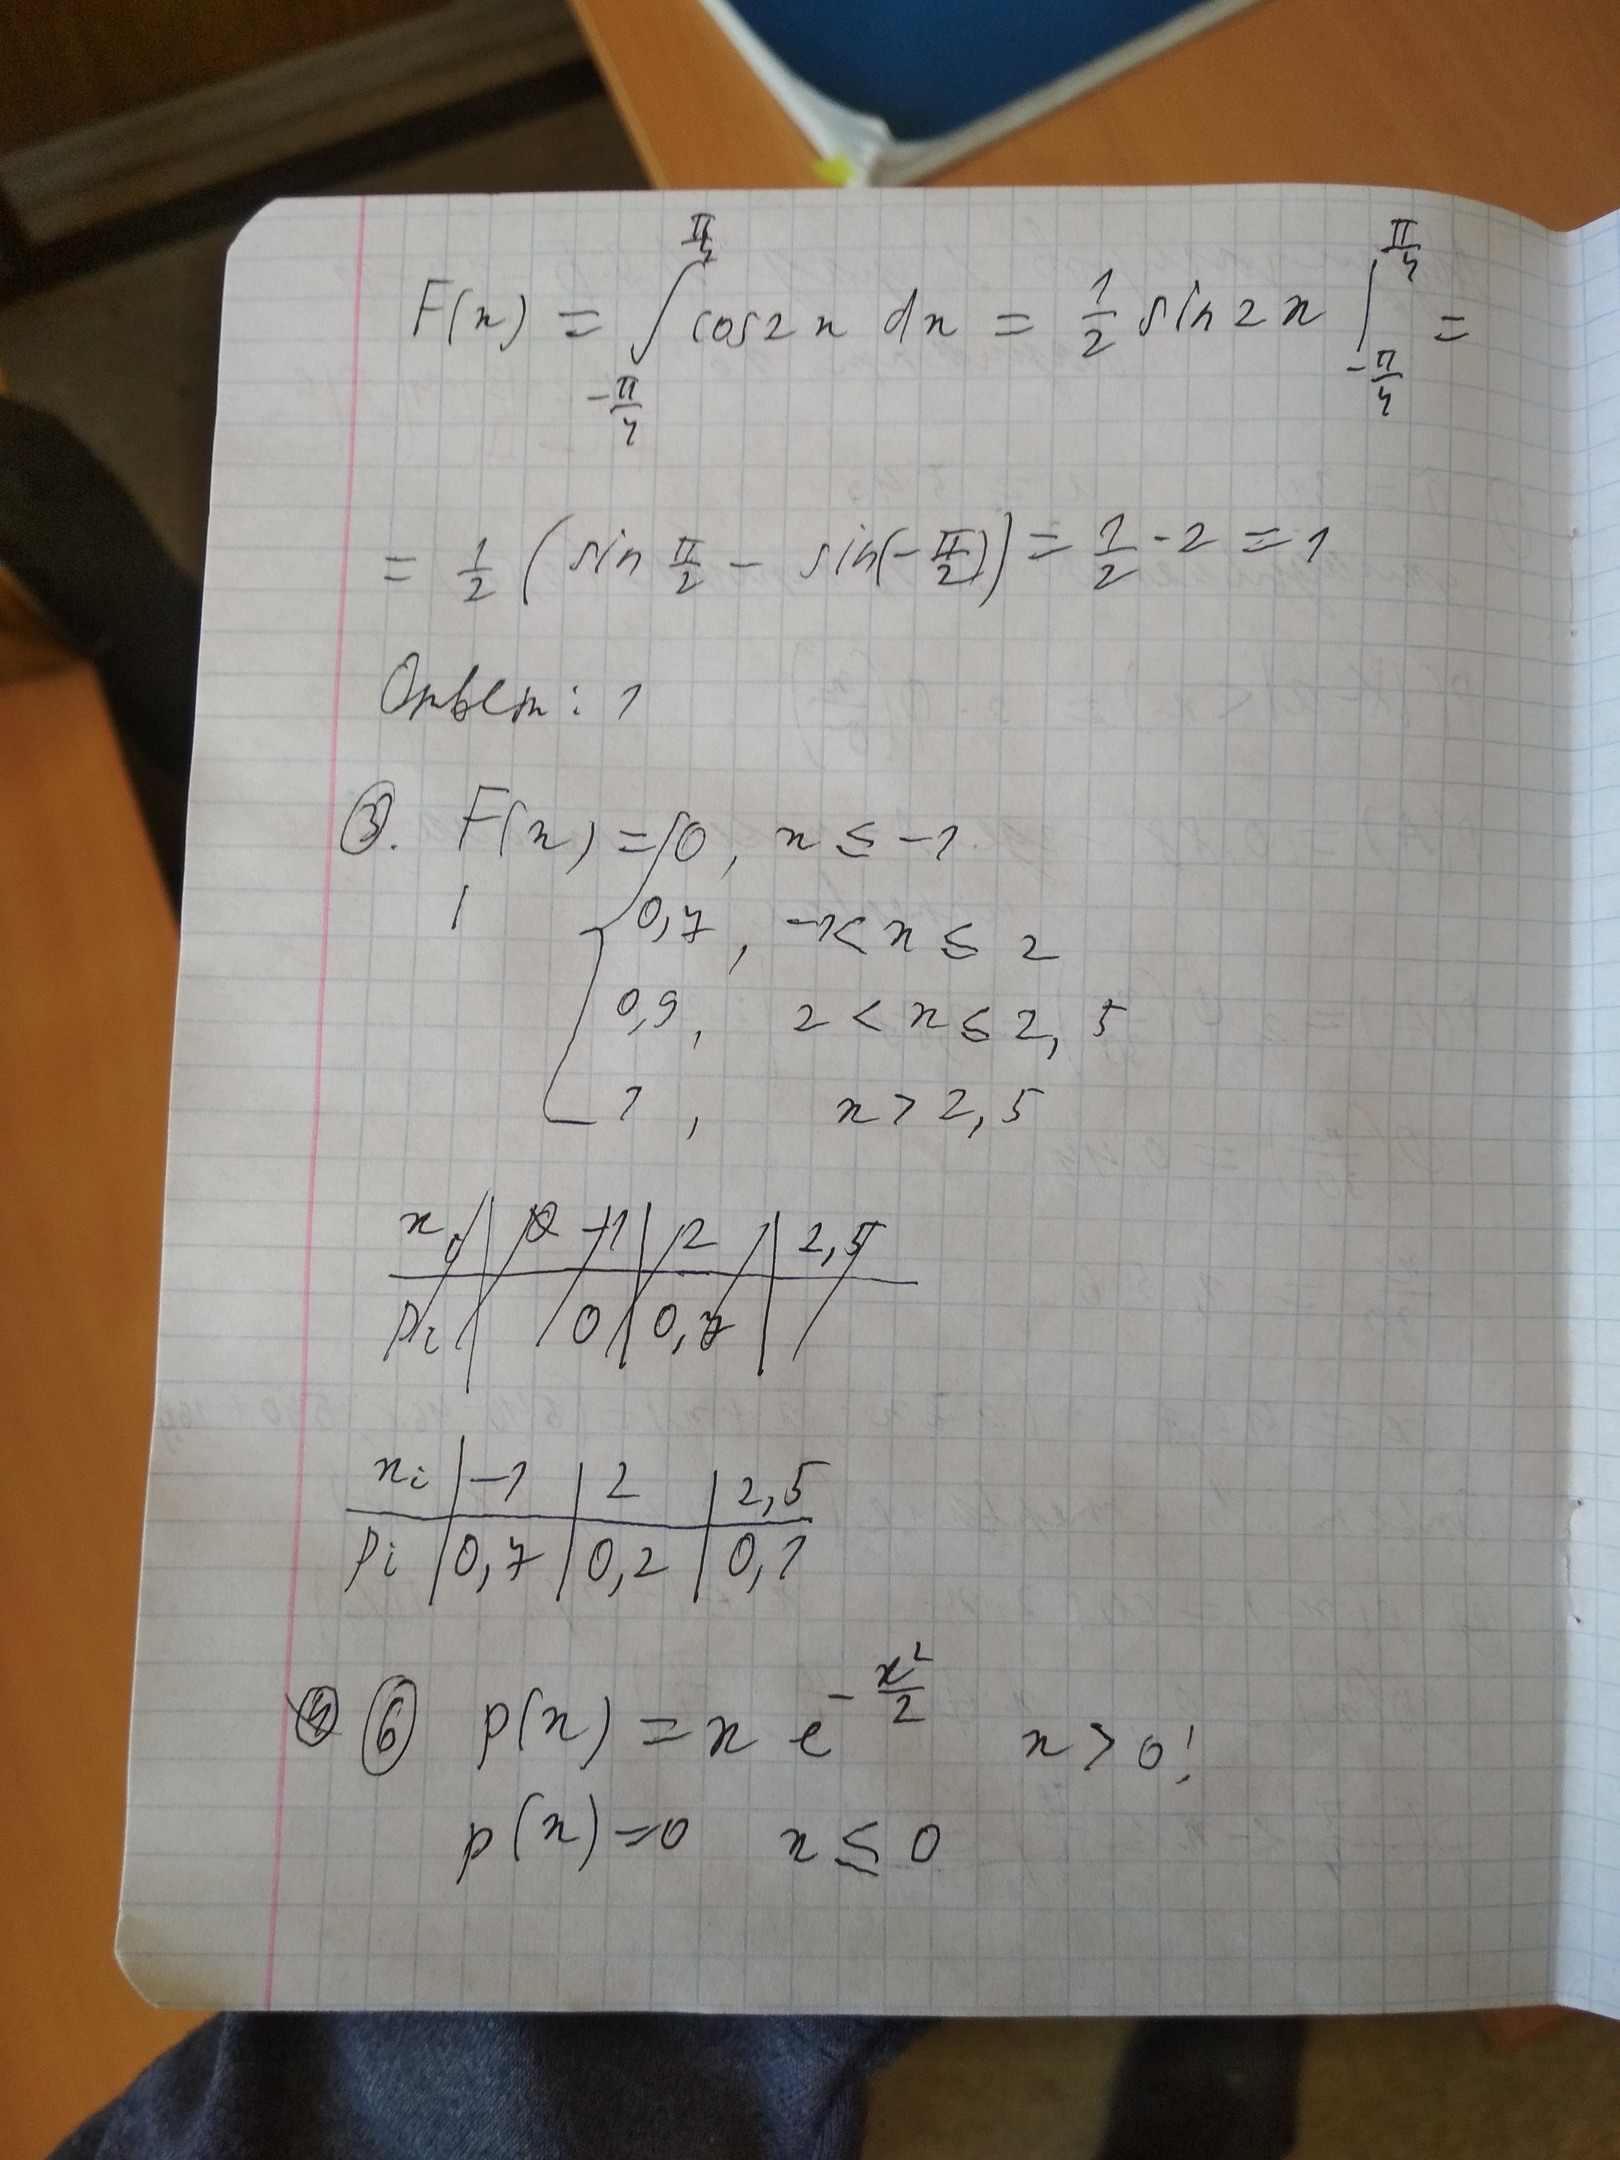 F(x) = ∫_{-π/4}^{π/4} cos2x dx = 1/2 sin2x |_{-π/4}^{π/4} =
= 1/2 (sin π/2 - sin(-π/2)) = 1/2 · 2 = 1
Ответ: 1
③. F(x) = { 0, x ≤ -1
0,7, -1 < x ≤ 2
0,9, 2 < x ≤ 2,5
1, x > 2,5
xi | -1 | 2 | 2,5
pi | 0 | 0,7 |
xi | -1 | 2 | 2,5
pi | 0,7 | 0,2 | 0,1
⑥ p(x) = x e^{-x²/2} x > 0!
p(x) = 0 x ≤ 0